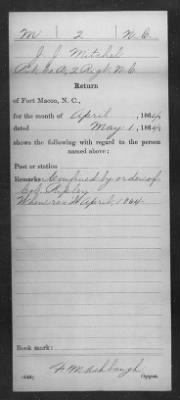 M | 2 | N.C.
J. J. Mitchel
Pvt. Co. A, 2 Regt. N.C.
Return
of Fort Macon, N. C.,
for the month of April, 1864
dated May 1, 1864
shows the following with regard to the person
named above:
Post or station
Remarks: Confined by order of
Col. Ripley
April 1864
Book mark:
(448) Copyist.